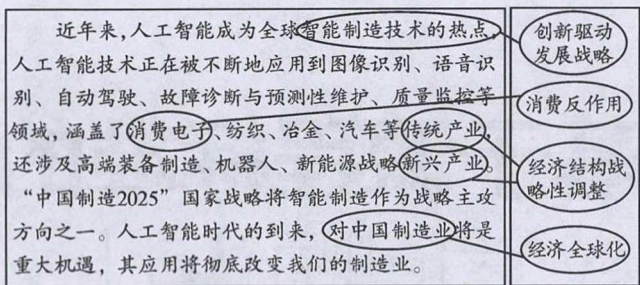 近年来，人工智能成为全球智能制造技术的热点，
人工智能技术正在被不断地应用到图像识别、语音识
别、自动驾驶、故障诊断与预测性维护、质量监控等
领域，涵盖了消费电子、纺织、冶金、汽车等传统产业，
还涉及高端装备制造、机器人、新能源战略新兴产业。
“中国制造2025”国家战略将智能制造作为战略主攻
方向之一。人工智能时代的到来，对中国制造业将是
重大机遇，其应用将彻底改变我们的制造业。
创新驱动
发展战略
消费反作用
经济结构战
略性调整
经济全球化